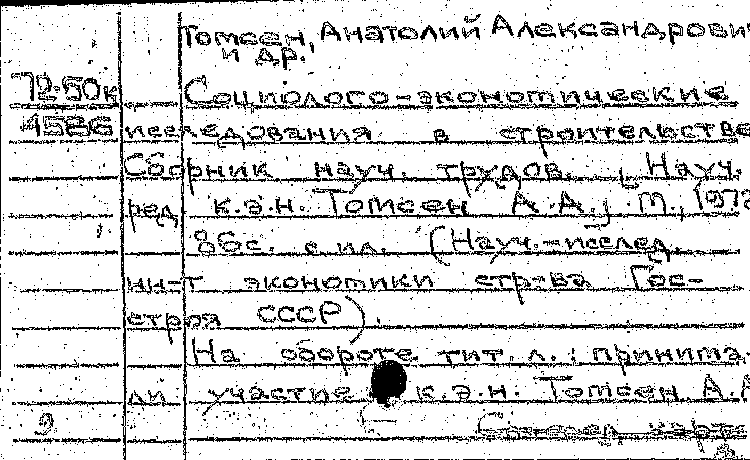 Томсен, Анатолий Александрович
и др.
72-50к Социолого-экономические
4586 исследования в строительстве
Сборник науч. трудов. [Науч.
ред. к.э.н. Томсен А.А.]. М., 1972
86с. с ил. (Науч.-исслед.
ин-т экономики стр-ва Гос-
строя СССР).
На обороте тит. л.: принима
ли участие к.э.н. Томсен А.А